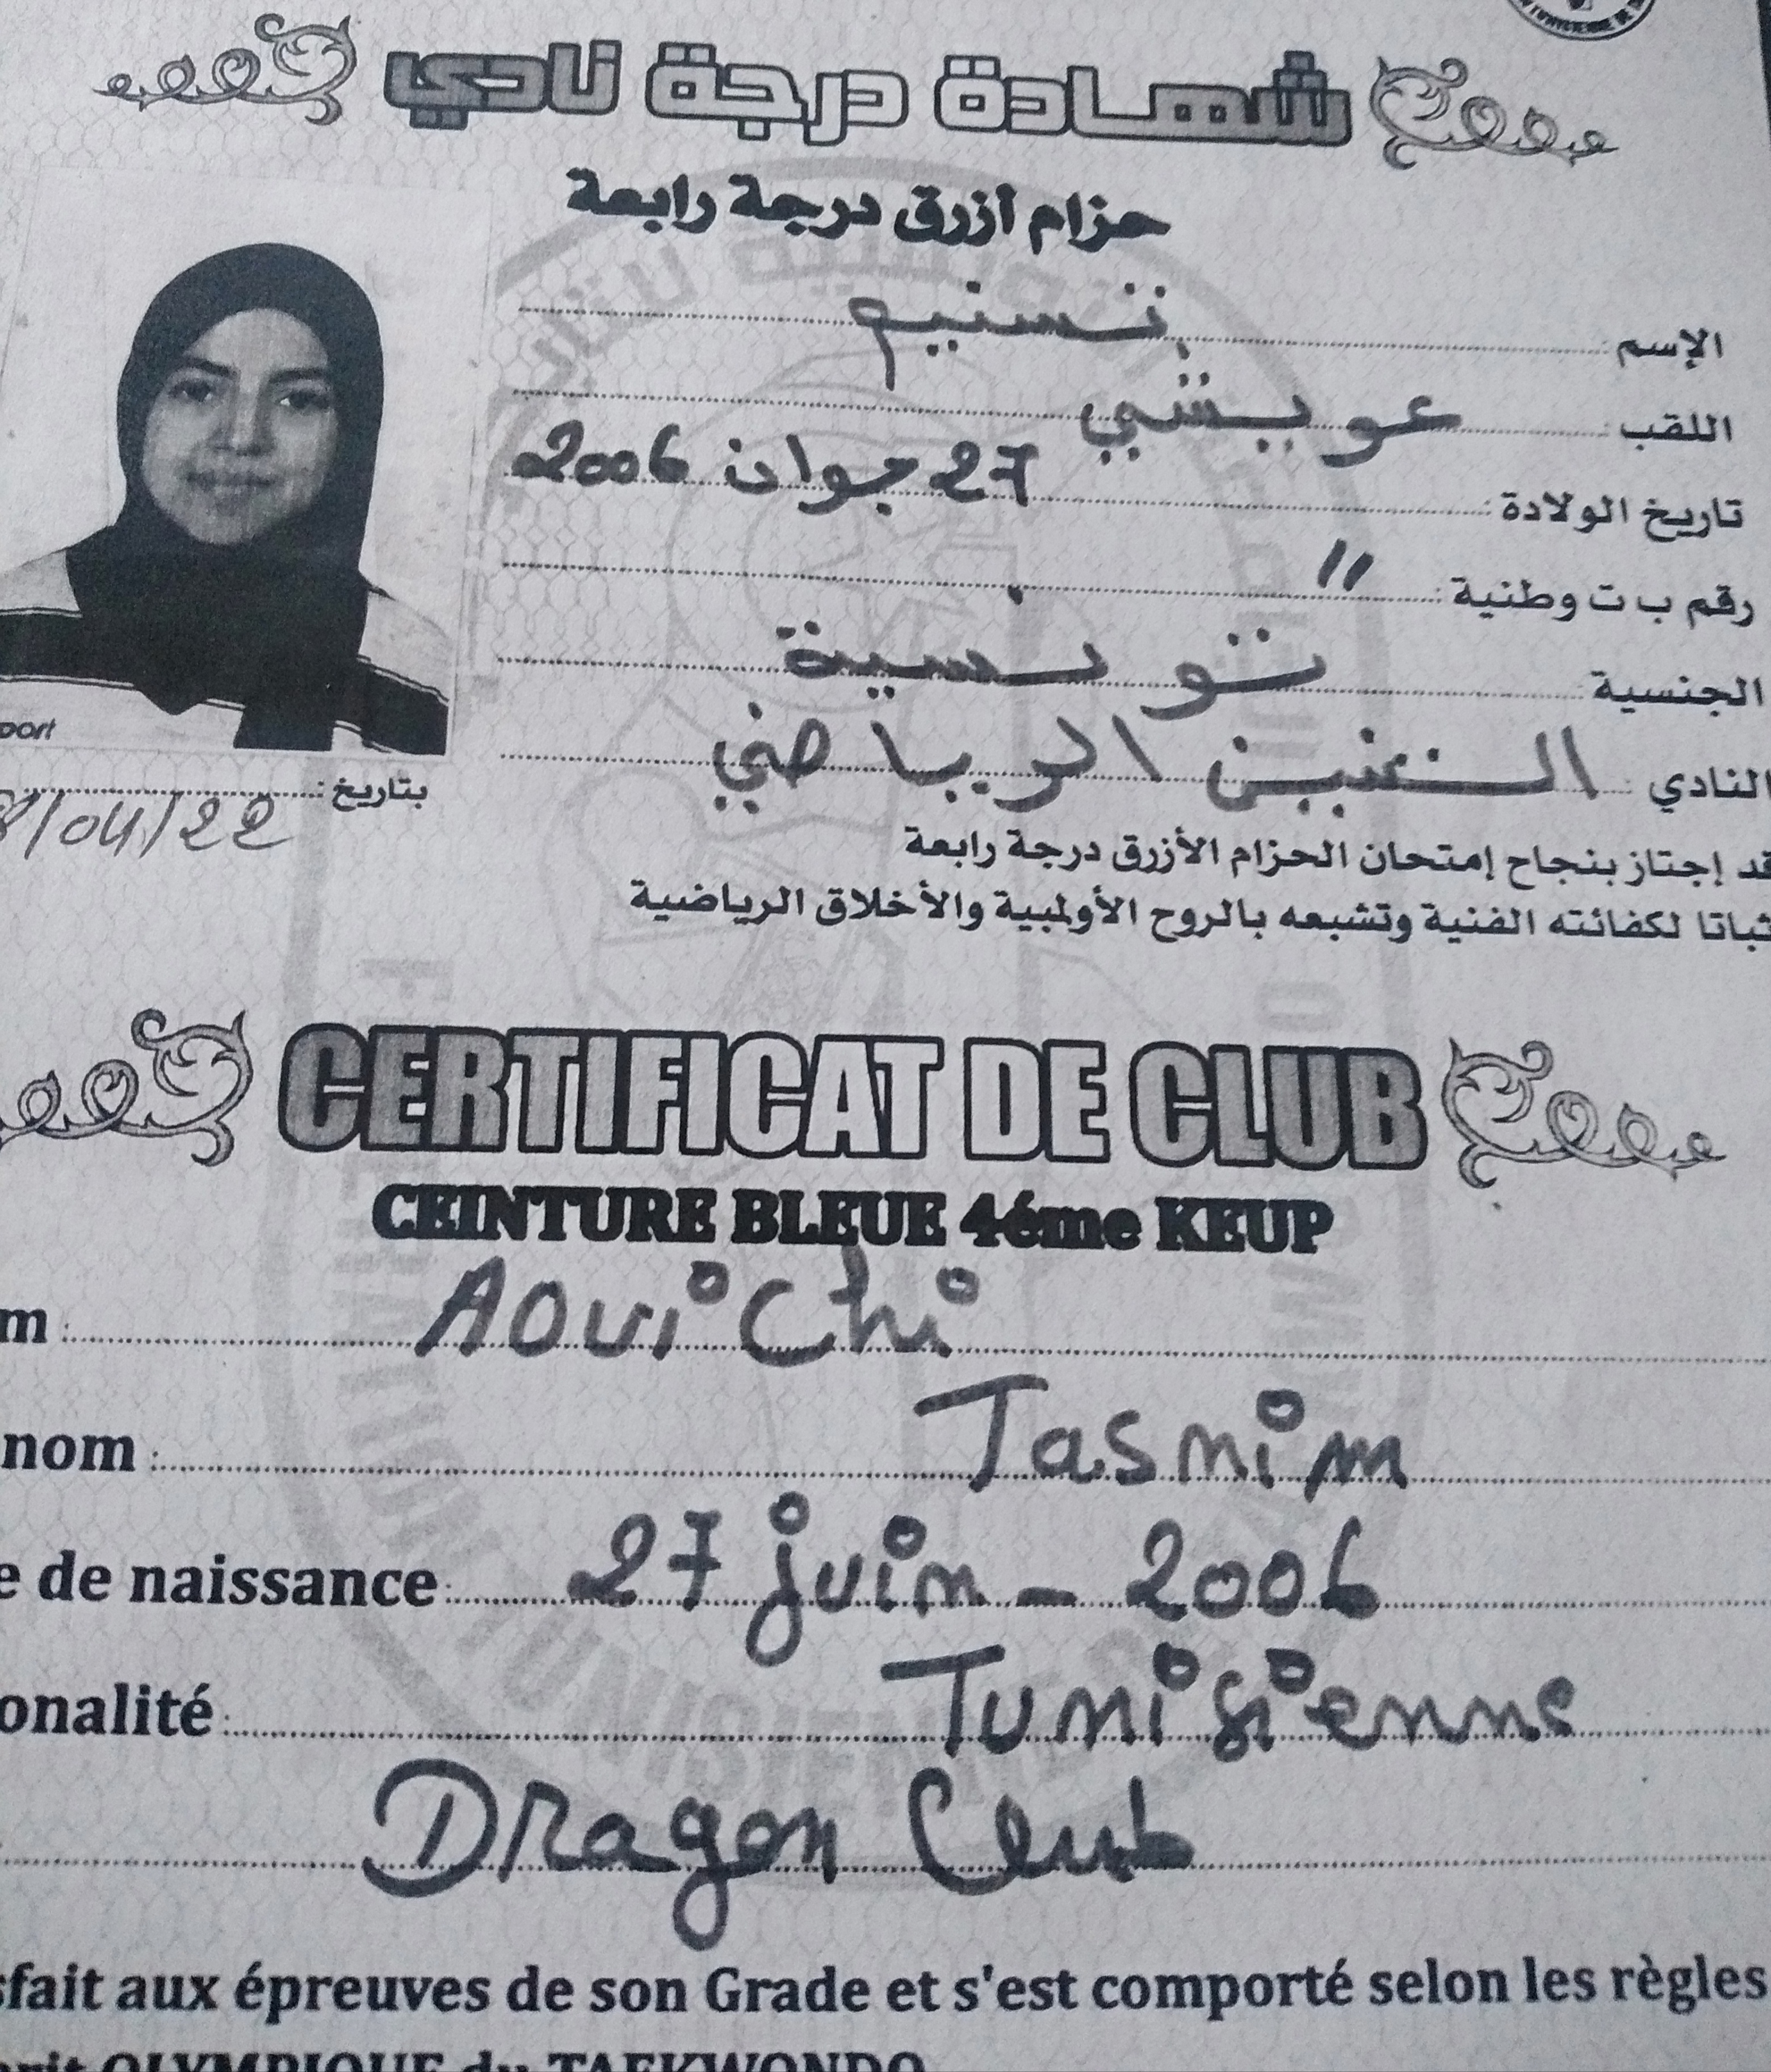 شهادة درجة نادي
حزام أزرق درجة رابعة
الإسم : تسنيم
اللقب : عويشي
تاريخ الولادة : 27 جوان 2006
رقم ب ت وطنية : //
الجنسية : تونسية
النادي : التنين الرياضي
port
بتاريخ : 8/04/22
قد إجتاز بنجاح إمتحان الحزام الأزرق درجة رابعة
ثباتا لكفائته الفنية وتشبعه بالروح الأولمبية والأخلاق الرياضية
CERTIFICAT DE CLUB
CEINTURE BLEUE 4éme KEUP
m : Aouichi
nom : Tasnim
e de naissance : 27 juin - 2006
onalité : Tunisienne
Dragon Club
sfait aux épreuves de son Grade et s'est comporté selon les règles
prit OLYMPIQUE du TAEKWONDO